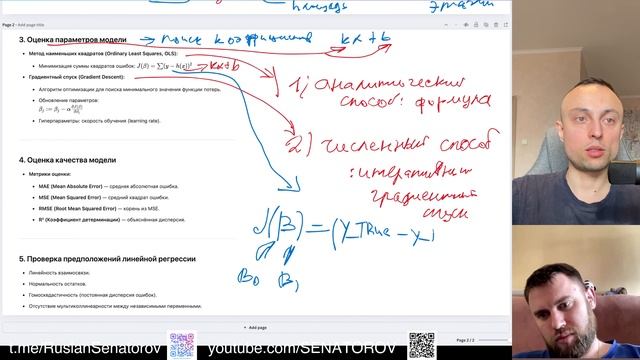 Page 2 - Add page title
3. Оценка параметров модели → поиск коэффициентов kx + b
• Метод наименьших квадратов (Ordinary Least Squares, OLS):
• Минимизация суммы квадратов ошибок: J(β) = ∑(y − h(x))² → kx+b
• Градиентный спуск (Gradient Descent):
• Алгоритм оптимизации для поиска минимального значения функции потерь.
• Обновление параметров:
• Гиперпараметры: скорость обучения (learning rate).
1) Аналитический
способ: формула
2) численный способ
: итеративный
градиентный
спуск
J(B) = (y_True − y_
B₀ B₁
4. Оценка качества модели
• Метрики оценки:
• MAE (Mean Absolute Error) — средняя абсолютная ошибка.
• MSE (Mean Squared Error) — средний квадрат ошибки.
• RMSE (Root Mean Squared Error) — корень из MSE.
• R² (Коэффициент детерминации) — объяснённая дисперсия.
5. Проверка предположений линейной регрессии
• Линейность взаимосвязи.
• Нормальность остатков.
• Гомоскедастичность (постоянная дисперсия ошибок).
• Отсутствие мультиколлинеарности между независимыми переменными.
+ Add page
Page 2 / 2
t.me/RuslanSenatorov
youtube.com/SENATOROV